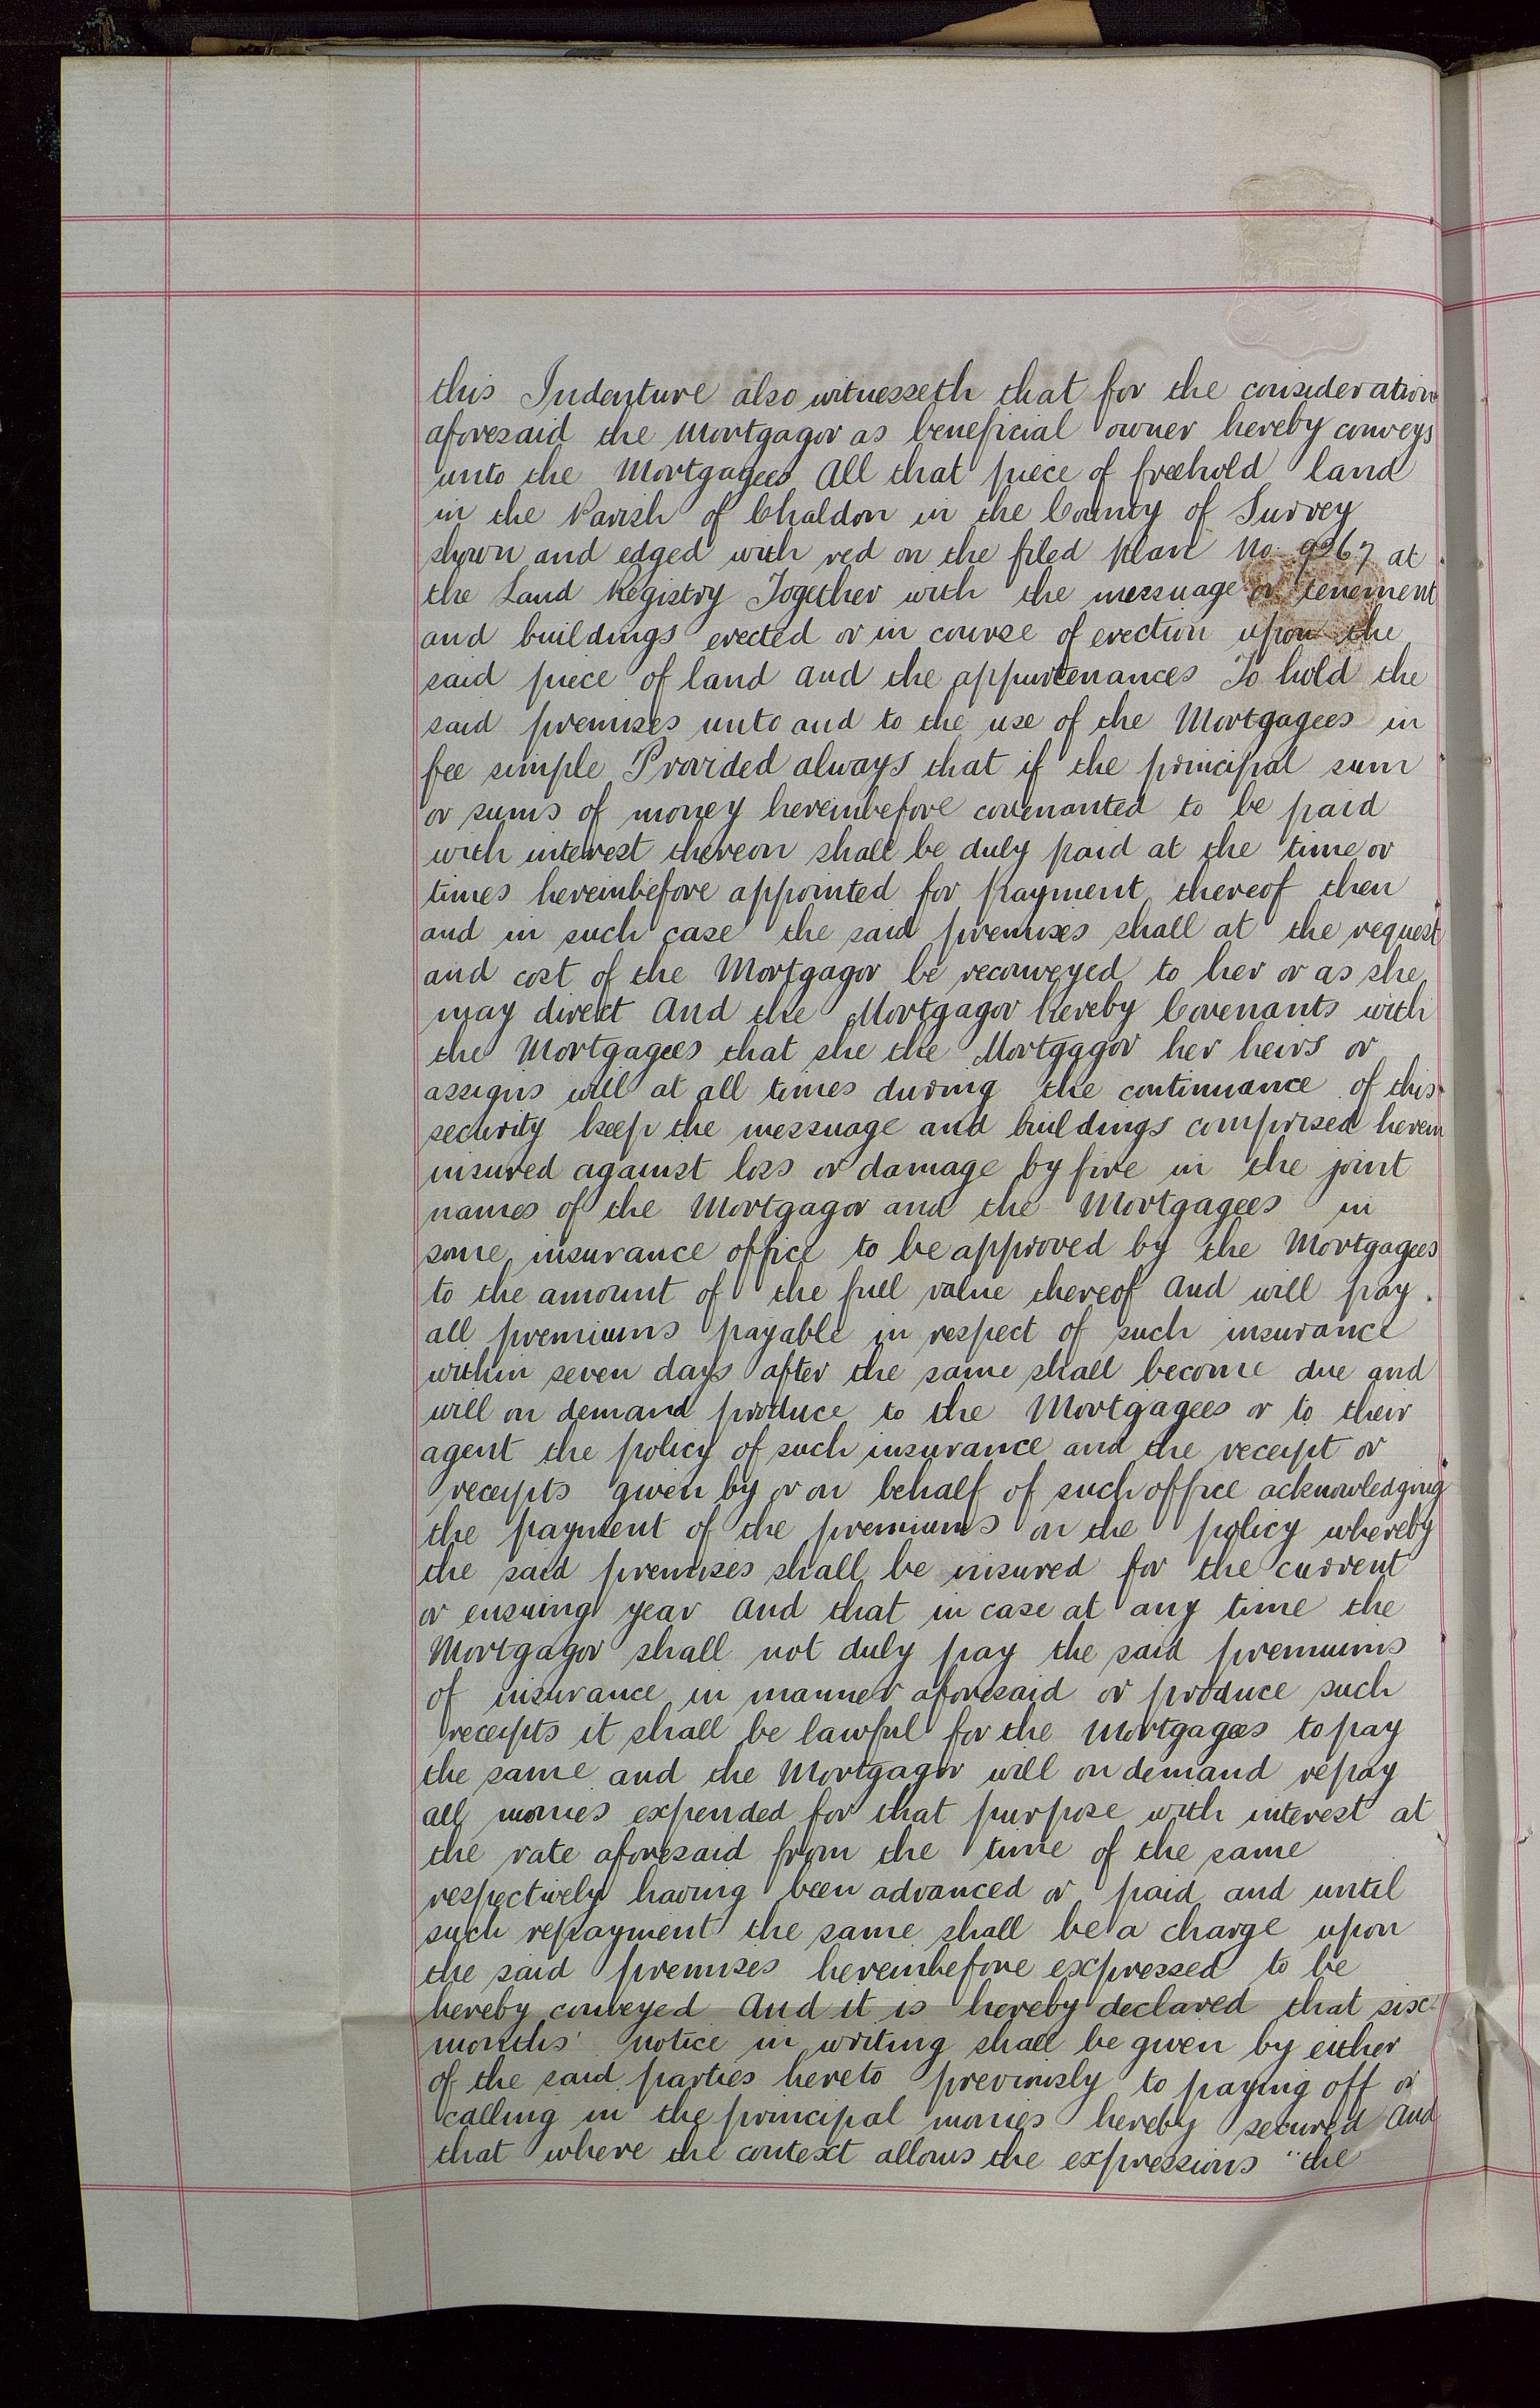 this Indenture also witnesseth that for the consideration
aforesaid the Mortgagor as beneficial owner hereby conveys
unto the Mortgagees All that piece of freehold land
in the Parish of Chaldon in the County of Surrey
shown and edged with red on the filed Plan No. 9267 at
the Land Registry Together with the messuage or tenement
and buildings erected or in course of erection upon the
said piece of land and the appurtenances To hold the
said premises unto and to the use of the Mortgagees in
fee simple Provided always that if the principal sum
or sums of money hereinbefore covenanted to be paid
with interest thereon shall be duly paid at the time or
times hereinbefore appointed for payment thereof then
and in such case the said premises shall at the request
and cost of the Mortgagor be reconveyed to her or as she
may direct And the Mortgagor hereby Covenants with
the Mortgagees that she the Mortgagor her heirs or
assigns will at all times during the continuance of this
security keep the messuage and buildings comprised herein
insured against loss or damage by fire in the joint
names of the Mortgagor and the Mortgagees in
some insurance office to be approved by the Mortgagees
to the amount of the full value thereof And will pay
all premiums payable in respect of such insurance
within seven days after the same shall become due and
will on demand produce to the Mortgagees or to their
agent the policy of such insurance and the receipt or
receipts given by or on behalf of such office acknowledging
the payment of the premiums on the policy whereby
the said premises shall be insured for the current
or ensuing year And that in case at any time the
Mortgagor shall not duly pay the said premiums
of insurance in manner aforesaid or produce such
receipts it shall be lawful for the Mortgagees to pay
the same and the Mortgagor will on demand repay
all monies expended for that purpose with interest at
the rate aforesaid from the time of the same
respectively having been advanced or paid and until
such repayment the same shall be a charge upon
the said premises hereinbefore expressed to be
hereby conveyed And it is hereby declared that six
months' notice in writing shall be given by either
of the said parties hereto previously to paying off or
calling in the principal monies hereby secured And
that where the context allows the expressions "the